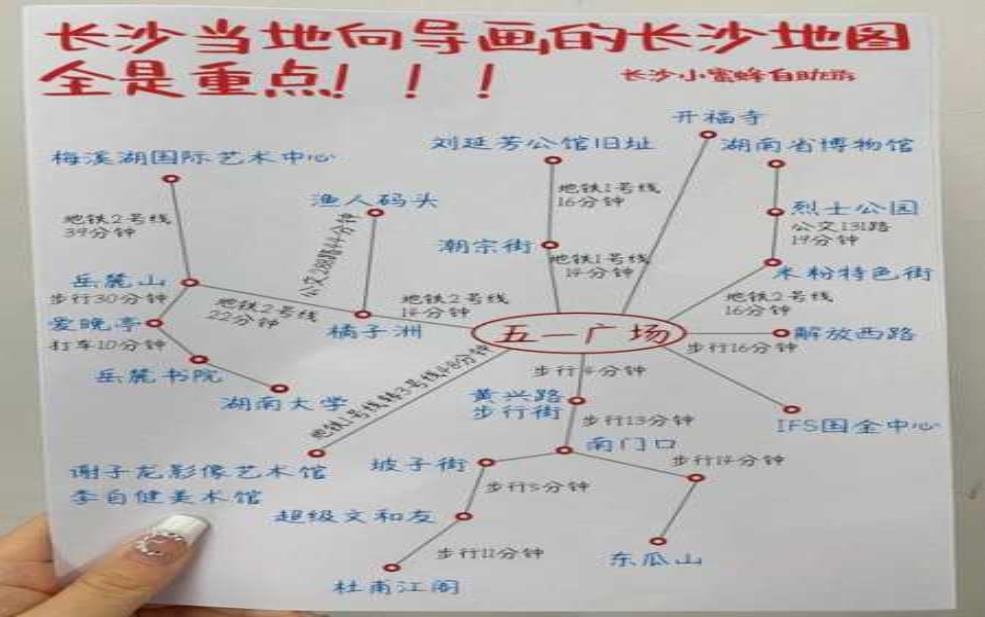 长沙当地向导画的长沙地图
全是重点！！！
长沙小蜜蜂自助游
开福寺
刘延芳公馆旧址
湖南省博物馆
梅溪湖国际艺术中心
地铁1号线
16分钟
渔人码头
烈士公园
公交131路
19分钟
地铁2号线
39分钟
公交288路44分钟
潮宗街
地铁1号线
14分钟
米粉特色街
岳麓山
步行30分钟
地铁2号线
22分钟
地铁2号线
14分钟
地铁2号线
16分钟
爱晚亭
打车10分钟
橘子洲
五一广场
解放西路
步行16分钟
岳麓书院
湖南大学
地铁1号线转3号线48分钟
步行4分钟
黄兴路
步行街
步行13分钟
IFS国金中心
南门口
谢子龙影像艺术馆
李自健美术馆
坡子街
步行14分钟
步行5分钟
超级文和友
步行11分钟
东瓜山
杜甫江阁